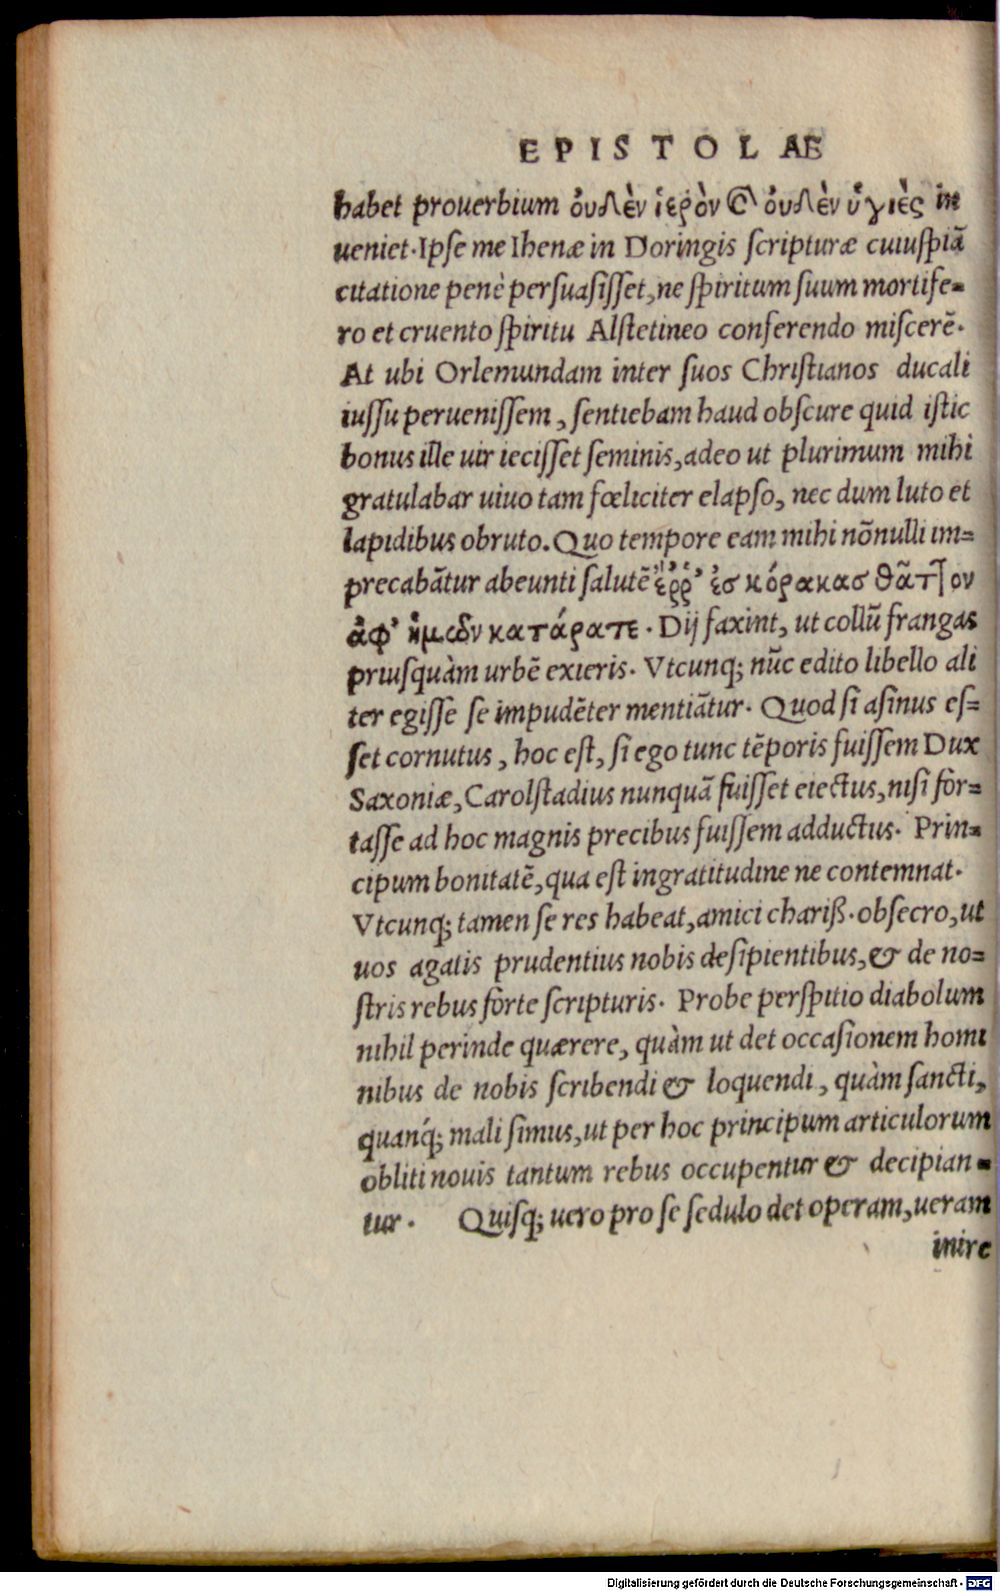 EPISTOLAE
habet prouerbium οὐδὲν ἱερὸν καὶ οὐδὲν ὑγιὲς in
ueniet. Ipse me Ihenæ in Doringis scripturæ cuiuspiã
citatione penè persuasisset, ne spiritum suum mortife-
ro et cruento spiritu Alstetineo conferendo miscerẽ.
At ubi Orlemundam inter suos Christianos ducali
iussu peruenissem, sentiebam haud obscure quid istic
bonus ille uir iecisset seminis, adeo ut plurimum mihi
gratularer uiuo tam fœliciter elapso, nec dum luto et
lapidibus obruto. Quo tempore eam mihi nõnulli im-
precabãtur abeunti salutẽ ἔρρ’ ἐσ κόρακασ θᾶττον
ἀφ’ ἡμῶν κατάρατε. Dij faxint, ut collũ frangas
priusquàm urbẽ exieris. Vtcunq; nũc edito libello ali
ter egisse se impudẽter mentiãtur. Quod si asinus es-
set cornutus, hoc est, si ego tunc tẽporis fuissem Dux
Saxoniæ, Carolstadius nunquã fuisset eiectus, nisi for-
tasse ad hoc magnis precibus fuissem adductus. Prin-
cipum bonitatẽ, qua est ingratitudine ne contemnat.
Vtcunq; tamen se res habeat, amici chariß. obsecro, ut
uos agatis prudentius nobis desipientibus, & de no-
stris rebus forte scripturis. Probe perspitio diabolum
nihil perinde quærere, quàm ut det occasionem homi
nibus de nobis scribendi & loquendi, quàm sancti,
quanq́; mali simus, ut per hoc principum articulorum
obliti nouis tantum rebus occupentur & decipian-
tur. Quisq; uero pro se sedulo det operam, ueram
inire
Digitalisierung gefördert durch die Deutsche Forschungsgemeinschaft - DFG